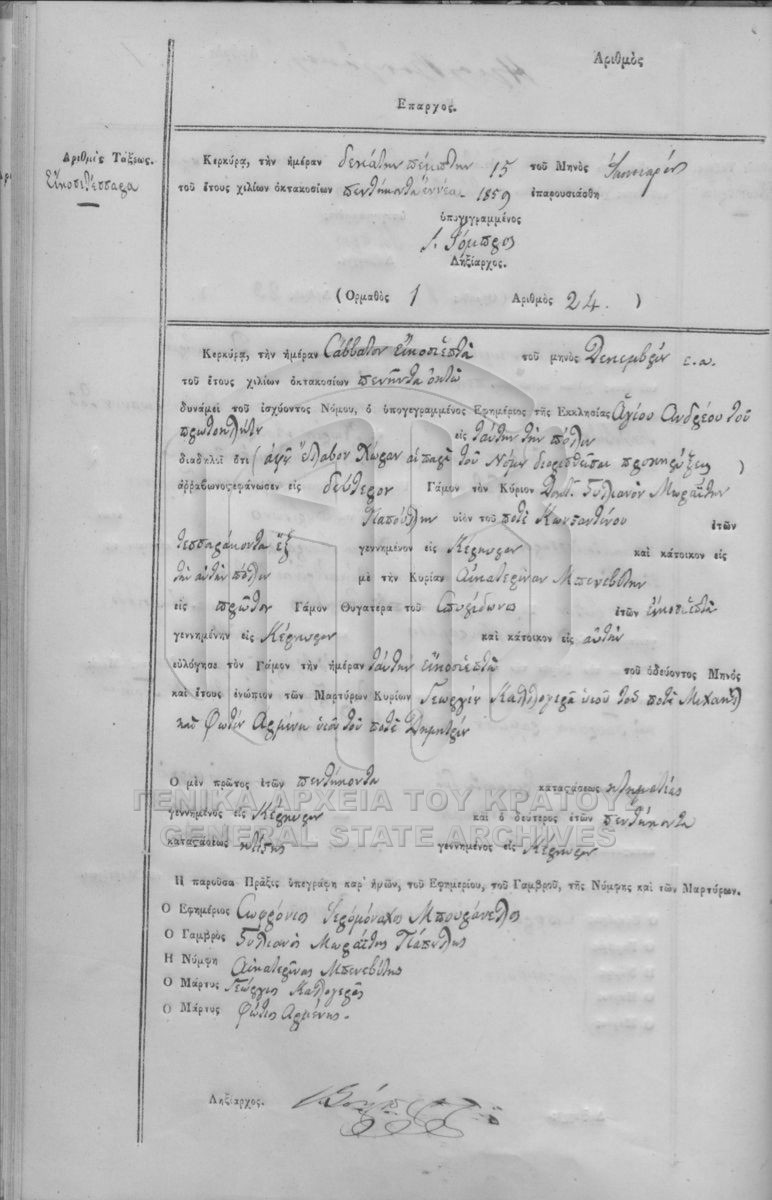 Ἀριθμὸς
Ἔπαρχος.
Ἀριθμὸς Τάξεως.
Εἰκοσιτέσσαρα
Κερκύρᾳ, τὴν ἡμέραν δεκάτην πέμπτην 15 τοῦ Μηνὸς Ἰανουαρίου
τοῦ ἔτους χιλίων ὀκτακοσίων πεντήκοντα ἐννέα 1859 ἐπαρουσιάσθη
ὑπογεγραμμένος
Ληξίαρχος.
(Ὁρμαθὸς 1 Ἀριθμὸς 24. )
Κερκύρᾳ, τὴν ἡμέραν Σάββατον εἰκοσιεπτὰ τοῦ μηνὸς Δεκεμβρίου ε.α.
τοῦ ἔτους χιλίων ὀκτακοσίων πενῆντα ὀκτὼ
δυνάμει τοῦ ἰσχύοντος Νόμου, ὁ ὑπογεγραμμένος Ἐφημέριος τῆς Ἐκκλησίας Ἁγίου Ἀνδρέου τοῦ
πρωτοκλήτου εἰς ταύτην τὴν πόλιν
διαδηλοῖ ὅτι (ἀφ' οὗ ἔλαβον χώραν αἱ παρὰ τοῦ Νόμου διορισθεῖσαι προκηρύξεις )
ἀρραβωνοςεφάνωσεν εἰς δεύτερον Γάμον τὸν Κύριον Στυλιανὸν Μωραΐτην
Παπούλην υἱὸν τοῦ ποτὲ Κωνσταντίνου ἐτῶν
τεσσαράκοντα ἓξ γεννημένον εἰς Κέρκυραν καὶ κάτοικον εἰς
τὴν αὐτὴν πόλιν μὲ τὴν Κυρίαν Αἰκατερίναν Μπενεβίτην
εἰς πρῶτον Γάμον Θυγατέρα τοῦ Σπυρίδωνος ἐτῶν εἰκοσιεπτὰ
γεννημένην εἰς Κέρκυραν καὶ κάτοικον εἰς αὐτὴν
εὐλόγησε τὸν Γάμον τὴν ἡμέραν ταύτην εἰκοσιεπτὰ τοῦ ὁδεύοντος Μηνὸς
καὶ ἔτους ἐνώπιον τῶν Μαρτύρων Κυρίων Γεωργίου Καλλογερᾶ υἱοῦ τοῦ ποτὲ Μιχαὴλ
καὶ Φωτίου Ἀρμένη υἱοῦ τοῦ ποτὲ Δημητρίου
Ὁ μὲν πρῶτος ἐτῶν πεντήκοντα καταςάσεως κτηματίας
γεννημένος εἰς Κέρκυραν καὶ ὁ δεύτερος ἐτῶν πεντήκοντα
καταςάσεως γεννημένος εἰς Κέρκυραν
Ἡ παροῦσα Πρᾶξις ὑπεγράφη παρ' ἡμῶν, τοῦ Ἐφημερίου, τοῦ Γαμβροῦ, τῆς Νύμφης καὶ τῶν Μαρτύρων.
Ὁ Ἐφημέριος Σωφρόνιος Ἱερομόναχος Μπουράνελος
Ὁ Γαμβρὸς Στυλιανὸς Μωραΐτης Παπούλης
Ἡ Νύμφη Αἰκατερίνας Μπενεβίτης
Ὁ Μάρτυς Γεώργιος Καλλογερᾶς
Ὁ Μάρτυς Φώτιος Ἀρμένης.
Ληξίαρχος.
ΓΕΝΙΚΑ ΑΡΧΕΙΑ ΤΟΥ ΚΡΑΤΟΥΣ
GENERAL STATE ARCHIVES